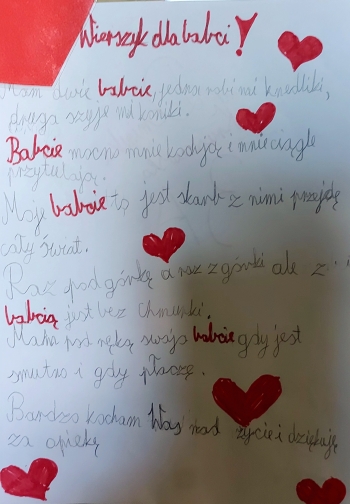 Wierszyk dla babci!
Mam dwie babcie, jedna robi mi knedliki,
druga szyje mi koniki.
Babcie mocno mnie kochają i mnie ciągle
przytulają.
Moje babcie to jest skarb z nimi przejdę
cały świat.
Raz pod górkę a raz z górki ale z
babcią jest bez chmurki.
Mam pod ręką swoją babcie gdy jest
smutno i gdy płaczę.
Bardzo kocham Was nad życie i dziękuję
za opiekę